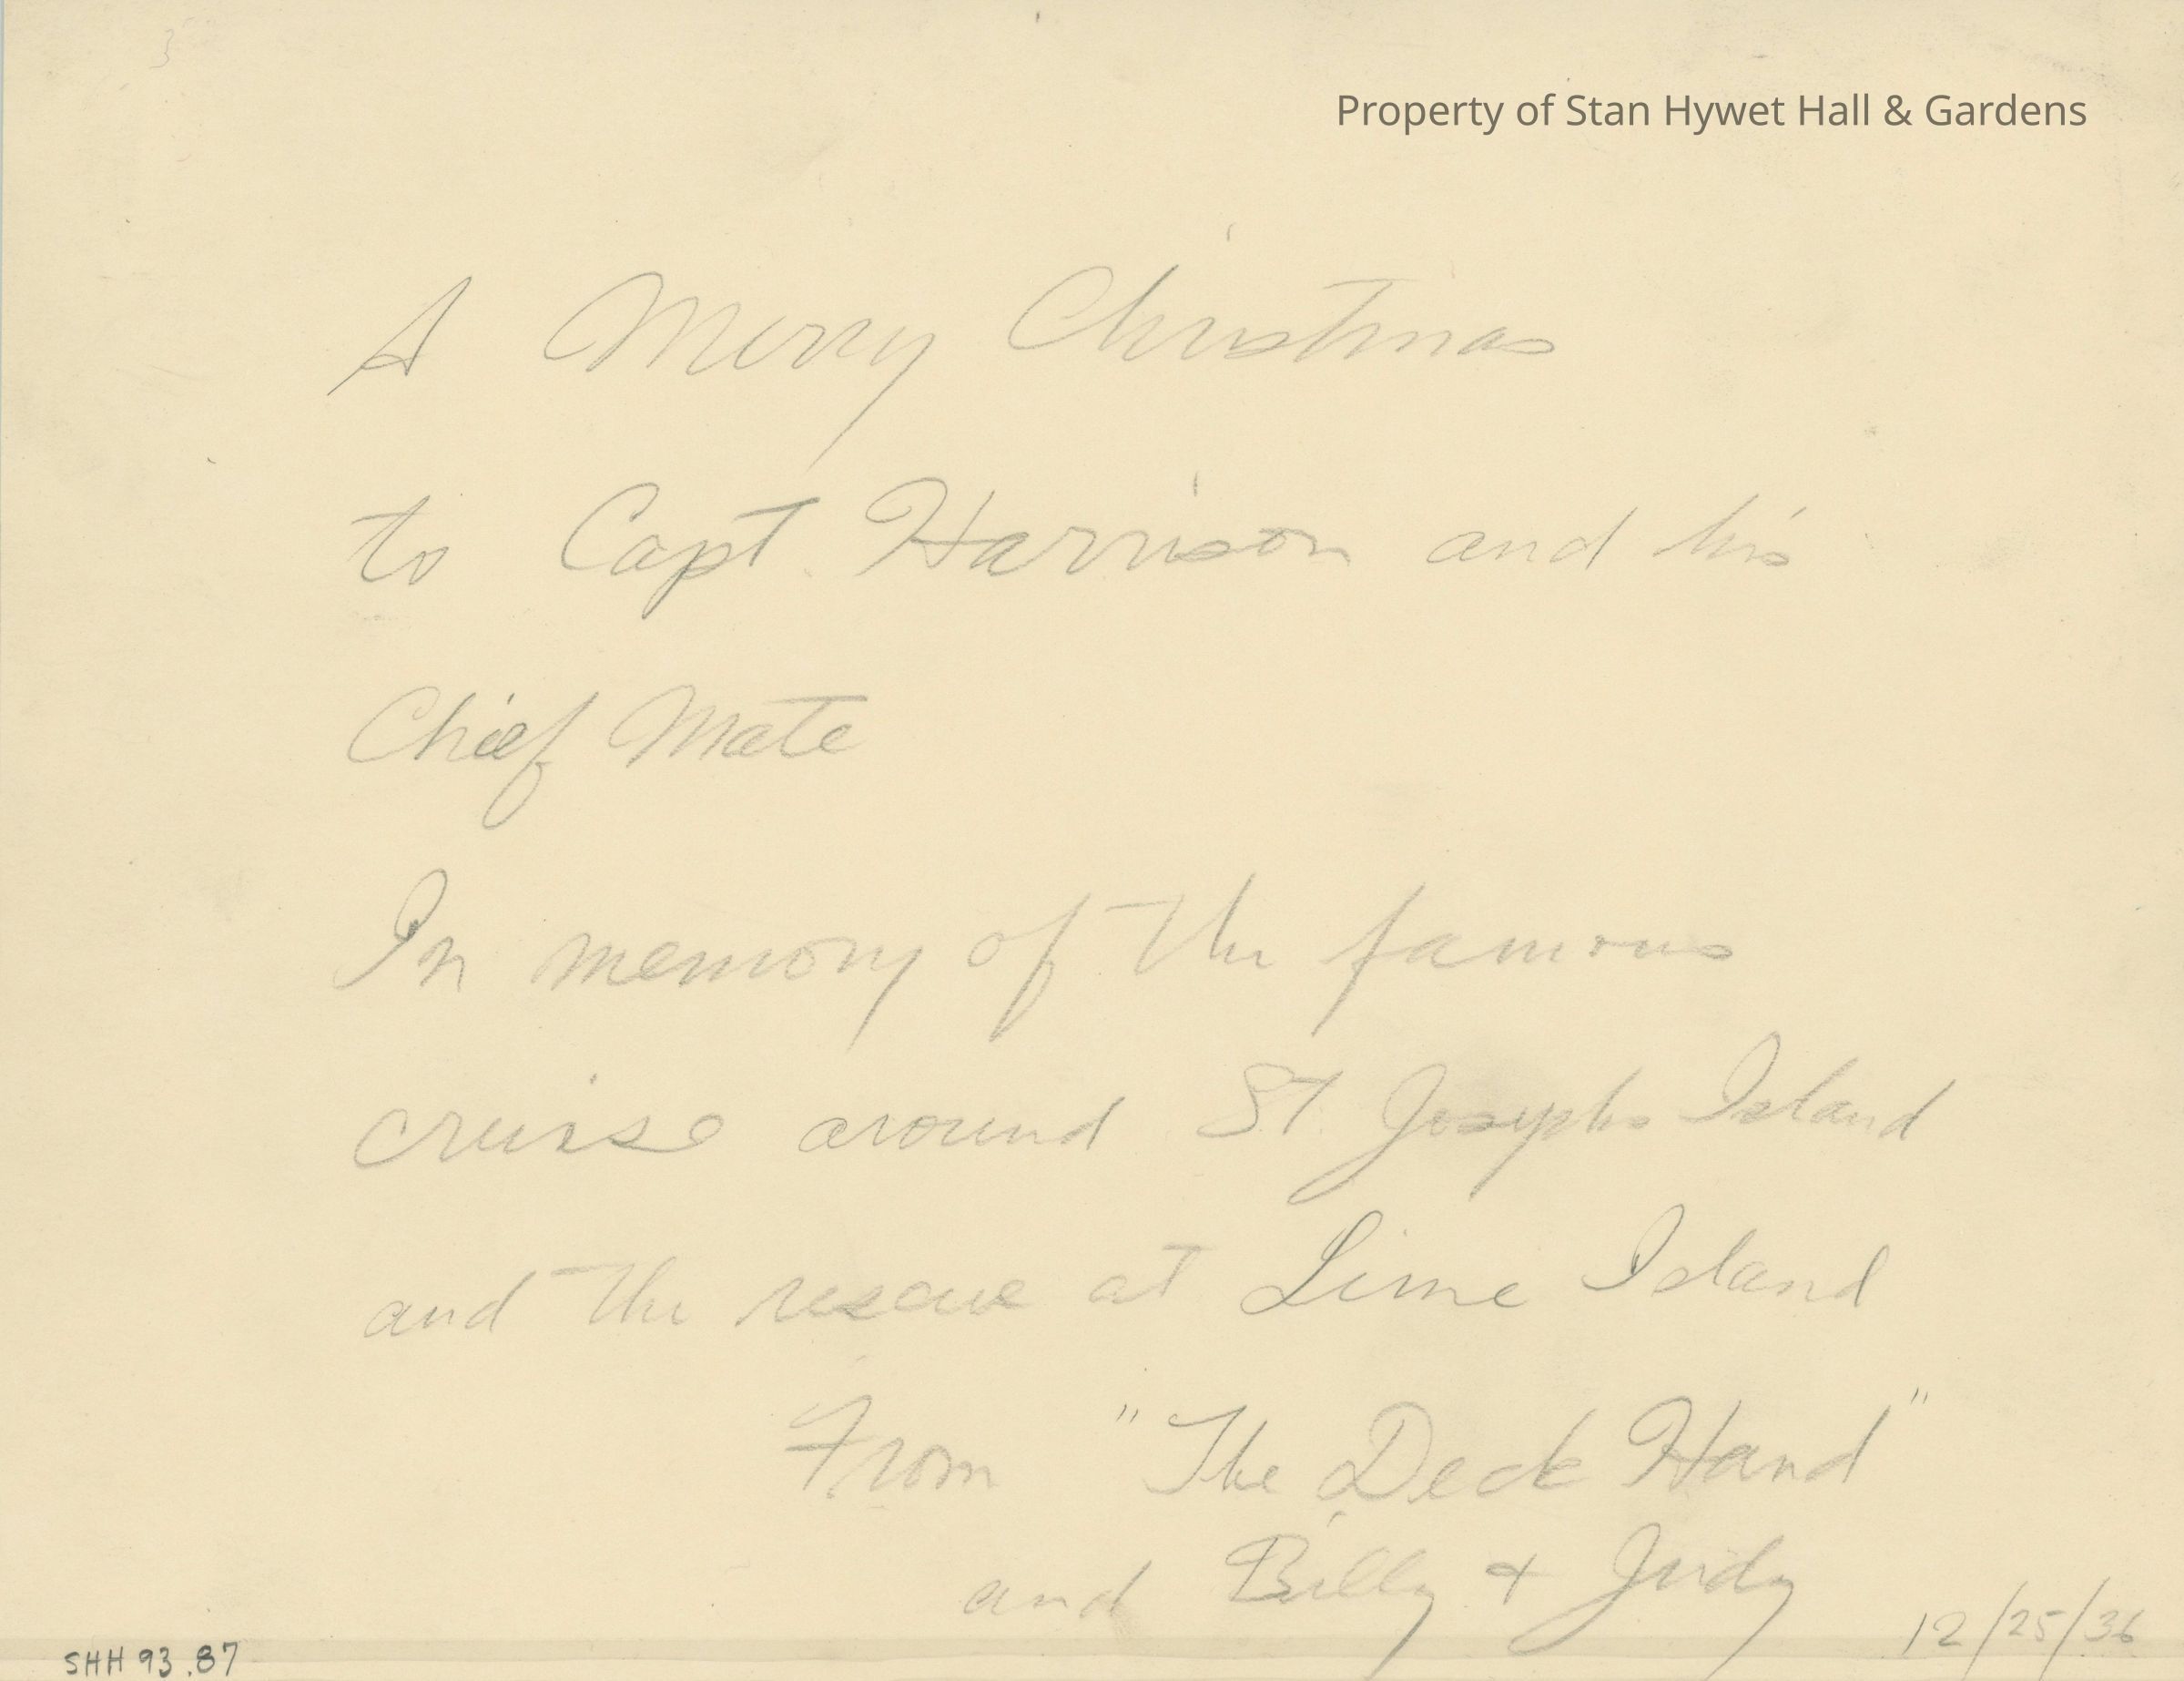 3
Property of Stan Hywet Hall & Gardens
A Merry Christmas
to Capt. Harrison and his
Chief Mate
In memory of the famous
cruise around St. Josephs Island
and the rescue at Lime Island
From "The Deck Hand"
and Billy + Judy
12/25/36
SHH 93.87